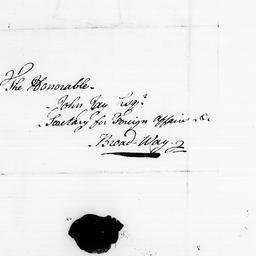 The Honorable
John Jay Esqr.
Secretary for Foreign Affairs &c
Broad-Way